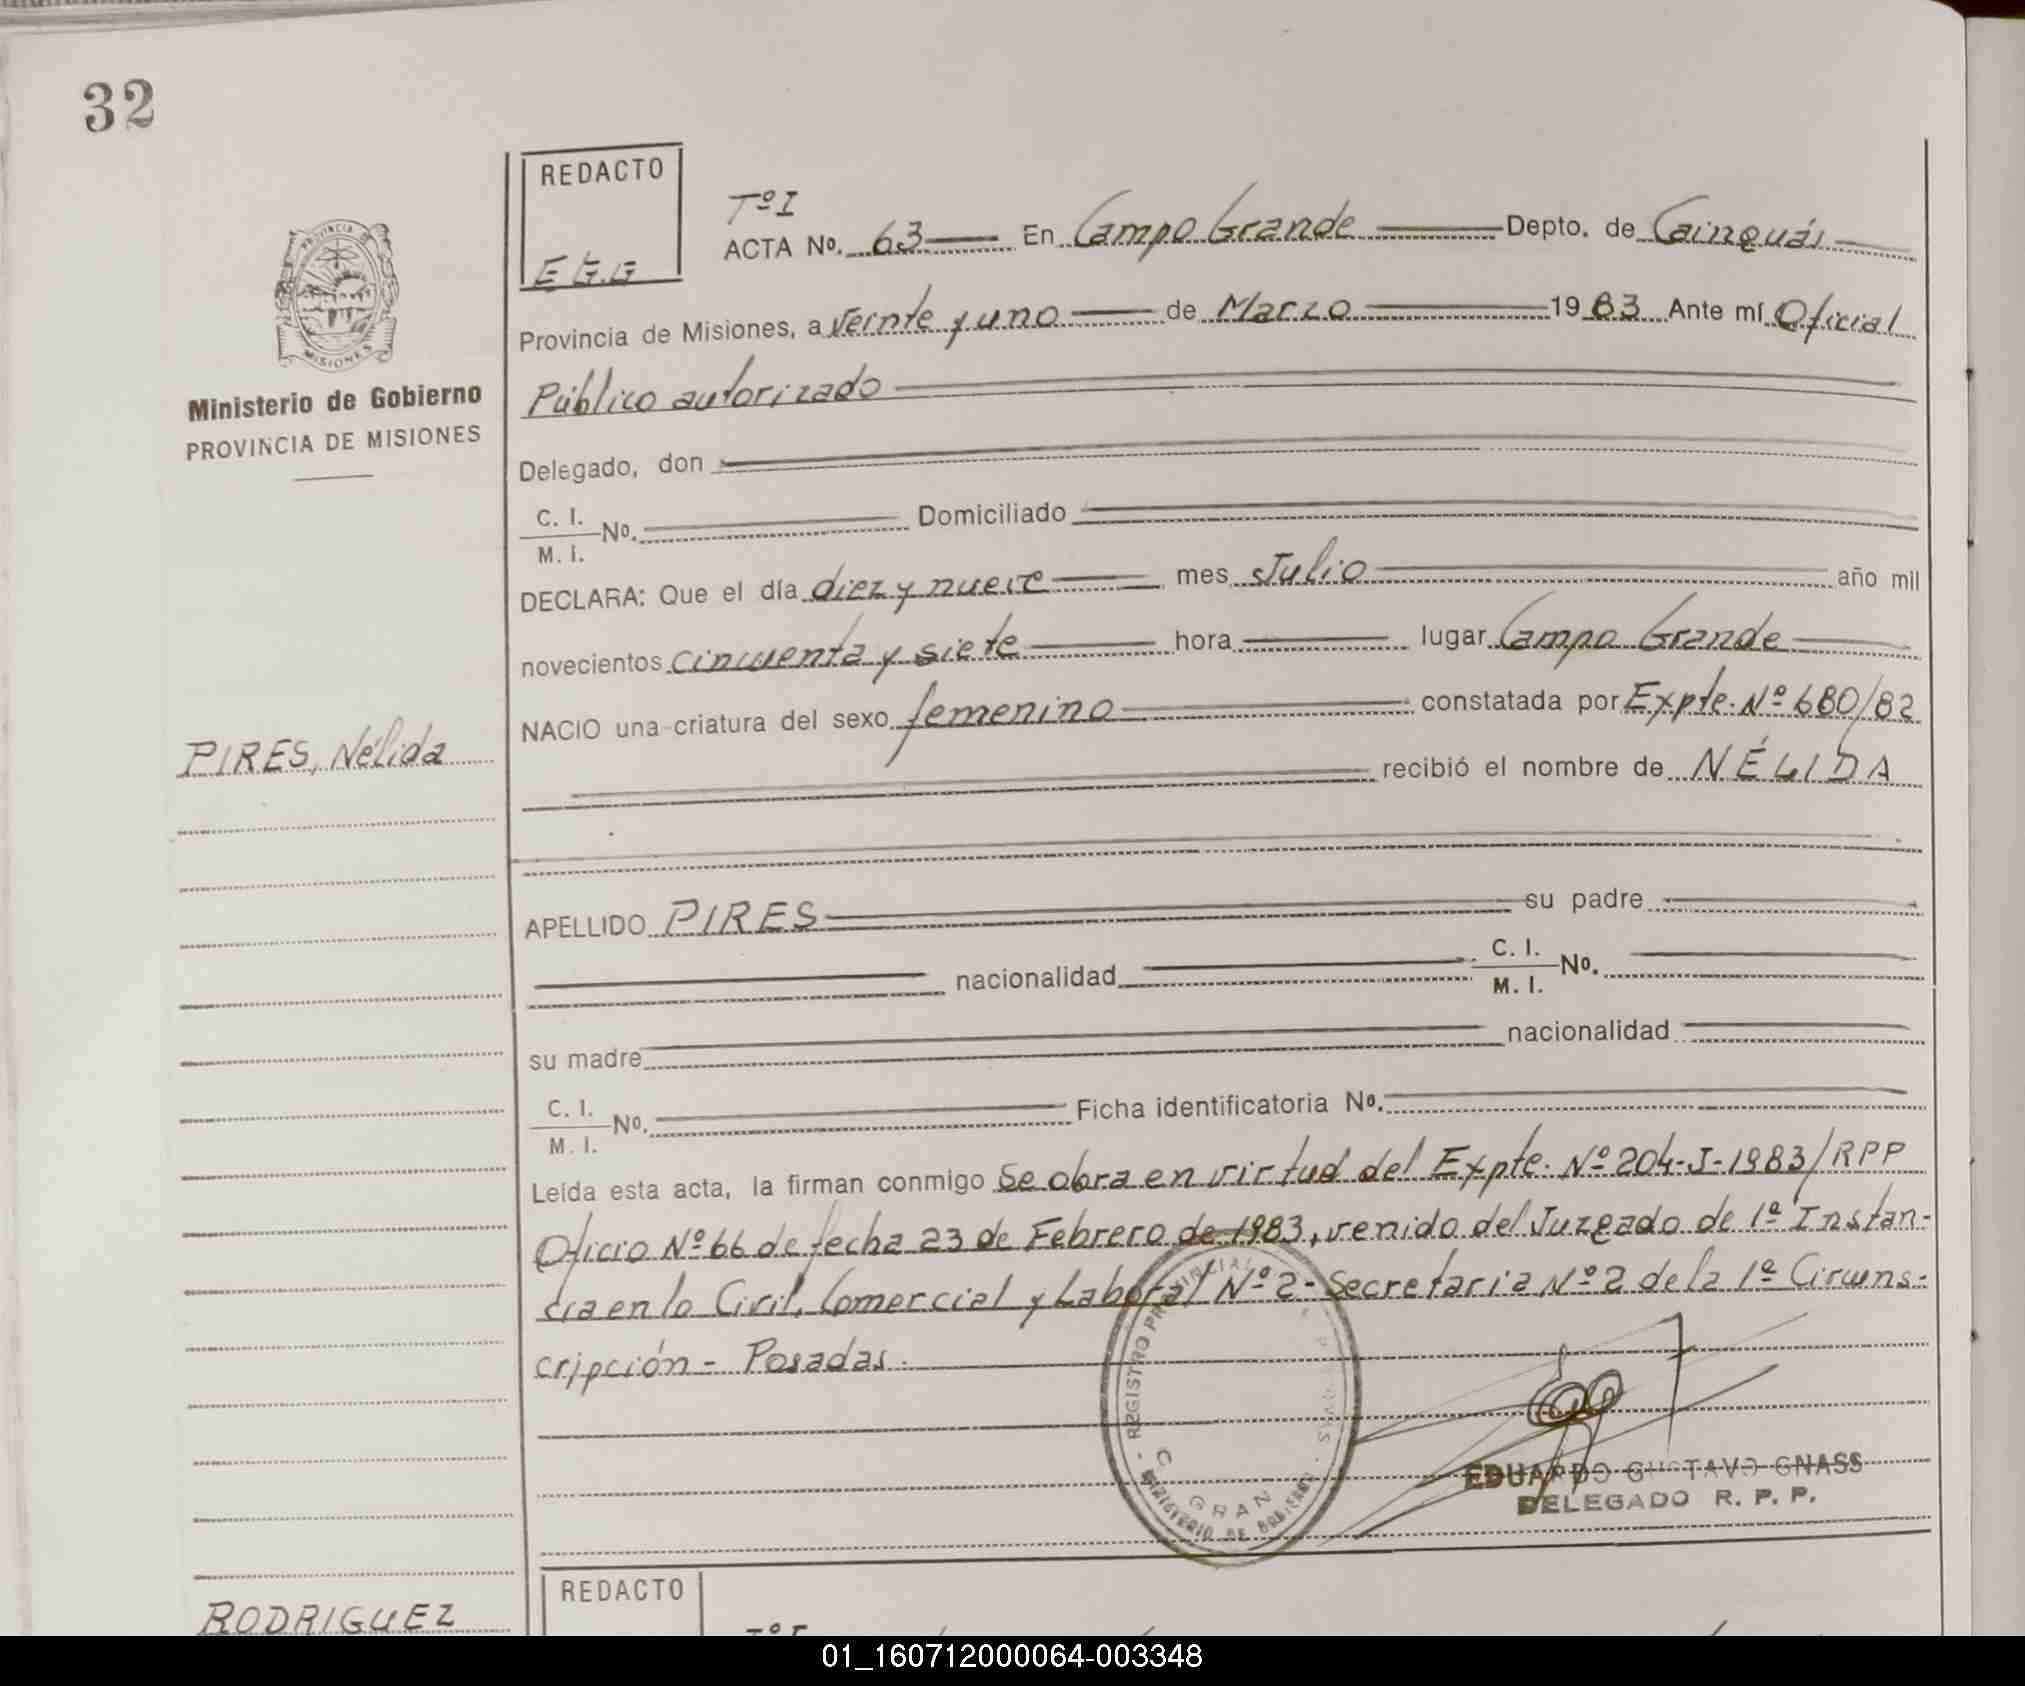 32
REDACTO
E G.G
PROVINCIA DE
MISIONES
Ministerio de Gobierno
PROVINCIA DE MISIONES
Tº I
ACTA Nº. 63 En Campo Grande Depto. de Cainguás
Provincia de Misiones, a veinte y uno de Marzo 1983 Ante mí Oficial
Público autorizado
Delegado, don
C. I.
M. I. Nº. Domiciliado
DECLARA: Que el día diez y nueve mes Julio año mil
novecientos cincuenta y siete hora lugar Campo Grande
NACIO una criatura del sexo femenino constatada por Expte. Nº 680/82
PIRES, Nélida
recibió el nombre de NÉLIDA
APELLIDO PIRES su padre
nacionalidad C. I.
M. I. Nº.
su madre nacionalidad
C. I.
M. I. Nº. Ficha identificatoria Nº.
Leída esta acta, la firman conmigo Se obra en virtud del Expte. Nº 204-J-1983/RPP
Oficio Nº 66 de fecha 23 de Febrero de 1983, venido del Juzgado de 1ª Instan-
cia en lo Civil, Comercial y Laboral Nº 2 - Secretaria Nº 2 de la 1ª Circuns-
cripción - Posadas.
REGISTRO PROVINCIAL
GRAN
MINISTERIO DE GOBIERNO
EDUARDO GUSTAVO GNASS
DELEGADO R. P. P.
REDACTO
RODRIGUEZ
01_160712000064-003348